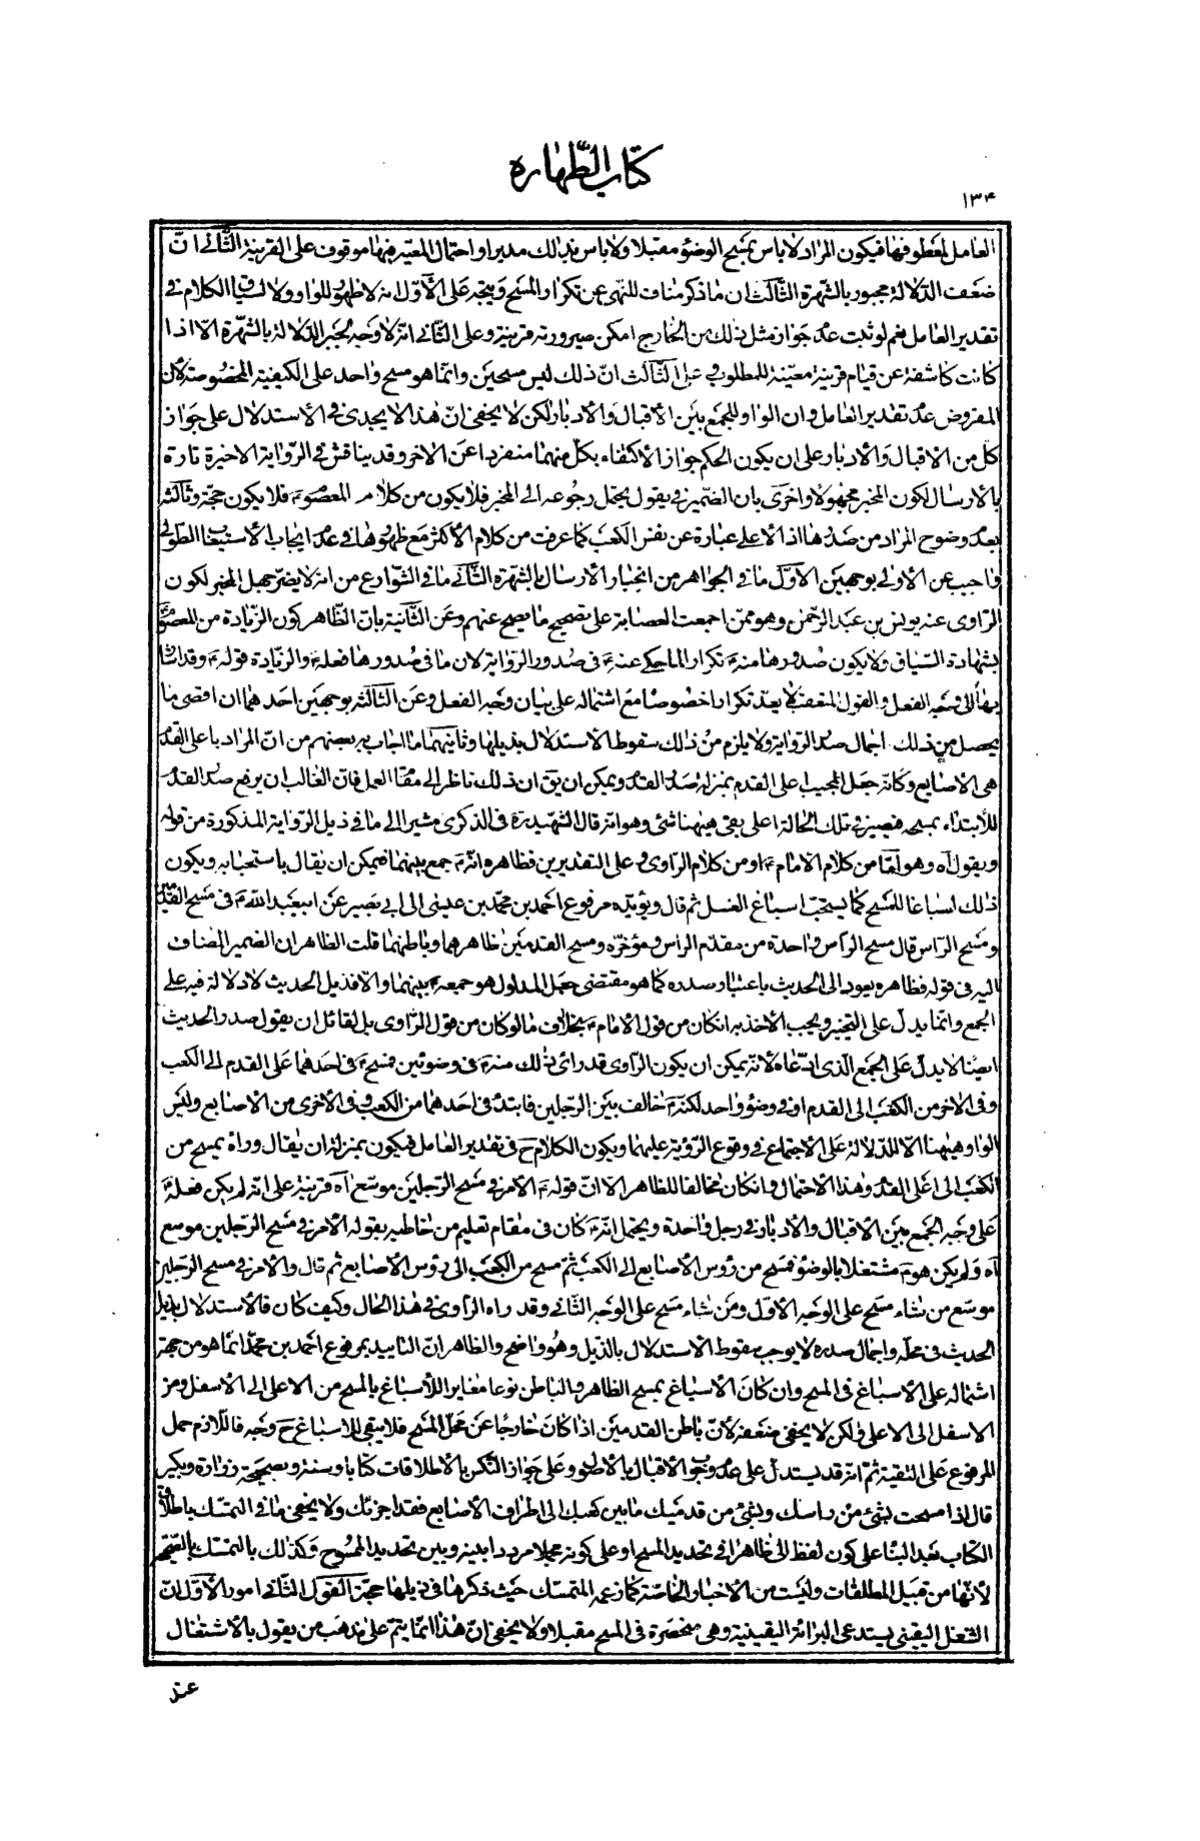 كتاب الطهارة
١٣۴
العامل لمعطوفها فيكون المراد لا باس بمسح الوضوء مقبلا ولا باس بذلك مدبرا واحتمال المعيّة فيها موقوف على القرينة الثّانى انّ
ضعف الدّلالة مجبور بالشّهرة الثّالث ان ما ذكر مناف للنهى عن تكرار المسح ويتجه على الاوّل انه لا ظهور للواو ولا لسياق الكلام فى
تقدير العامل نعم لو ثبت عدم جواز مثل ذلك من الخارج امكن صيرورته قرينة وعلى الثّانى انّه لا وجه لجبر الدّلالة بالشّهرة الّا اذا
كانت كاشفة عن قيام قرينة معيّنة للمطلوب وعلى الثّالث انّ ذلك ليس مسحين وانّما هو مسح واحد على الكيفية المخصوصة لان
المفروض عدم تقدير العامل وان الواو للجمع بين الاقبال والادبار لكن لا يخفى انّ هذا لا يجدى فى الاستدلال على جواز
كل من الاقبال والادبار على ان يكون الحكم جواز الاكتفاء بكلّ منهما منفردا عن الاخر وقد يناقش فى الرّواية الاخيرة تارة
بالارسال لكون المخبر مجهولا واخرى بان الضّمير فى يقول يحتمل رجوعه الى المخبر فلا يكون من كلام المعصوم ع فلا يكون حجّة وثالثة
بعدم وضوح المراد من صدرها اذ الاعلى عبارة عن نفس الكعب كما عرفت من كلام الاكثر مع ظهورها فى عدم ايجاب الاستيعاب الطولى
واجيب عن الاولى بوجهين الاوّل ما فى الجواهر من انجبار الارسال بالشّهرة الثّانى ما فى الشّوارع من انه لا يضرّ جهل المخبر لكون
الرّاوى عنه يونس بن عبد الرّحمن وهو ممّن اجمعت العصابة على تصحيح ما يصح عنهم وعن الثّانية بانّ الظّاهر كون الزّيادة من المعصوم
بشهادة السّياق ولا يكون صدورها منه ع تكرارا لما حكى عنه ع فى صدور الرّواية لان ما فى صدورها فعله ع والزّيادة قوله ع وقد اشار
بها الى وجه الفعل والقول المتعقب لا يعدّ تكرارا خصوصا مع اشتماله على بيان وجه الفعل وعن الثّالثة بوجهين احدهما ان اقصى ما
يحصل من ذلك اجمال صدر الرّواية ولا يلزم من ذلك سقوط الاستدلال بذيلها وثانيهما ما اجاب به بعضهم من انّ المراد باعلى القدم
هى الاصابع وكانّه جعل المجيب على القدم بمنزلة صدر القدم ويمكن ان يق ان ذلك ناظر الى مقام العمل فانّ الغالب ان يرفع صدر القدم
للابتداء بمسحه فيصير فى تلك الحالة اعلى بقى هيهنا شئ وهو انّه قال الشّهيد ره فى الذكرى مشيرا الى ما فى ذيل الرّواية المذكورة من قوله
ويقول آه وهو امّا من كلام الامام ع او من كلام الرّاوى وعلى التقديرين فظاهره انّه ع جمع بينهما فيمكن ان يقال باستحبابه ويكون
ذلك اسباغا للمسح كما يستحبّ اسباغ الغسل ثم قال ويؤيّده مرفوع احمد بن محمّد بن عيسى الى ابى بصير عن ابيعبد اللّه ع فى مسح القدمين
ومسح الرّاس قال مسح الرّاس واحدة من مقدّم الراس ومؤخّره ومسح القدمين ظاهرهما وباطنهما قلت الظاهر ان الضمير المضاف
اليه فى قوله فظاهره يعود الى الحديث باعتبار صدره كما هو مقتضى جعل المدلول هو جمعه ع بينهما والّا فذيل الحديث لا دلالة فيه على
الجمع وانّما يدلّ على التخيير ويجب الاخذ به ان كان من قول الامام ع بخلاف ما لو كان من قول الرّاوى بل لقائل ان يقول صدر الحديث
ايضا لا يدلّ على الجمع الّذى ادّعاه لانّه يمكن ان يكون الرّاوى قد راى ذلك منه ع فى وضوئين فمسح ع فى احدهما على القدم الى الكعب
وفى الاخر من الكعب الى القدم او فى وضوء واحد لكنّه ع خالف بين الرّجلين فابتدء فى احدهما من الكعب وفى الاخرى من الاصابع وليس
الواو هيهنا الّا للدّلالة على الاجتماع فى وقوع الرّؤية عليهما ويكون الكلام ح فى تقدير العامل فيكون بمنزلة ان يقال وراه يمسح من
الكعب الى اعلى القدم وهذا الاحتمال وان كان مخالفا للظاهر الّا انّ قوله ع الامر فى مسح الرّجلين موسّع آه قرينة على انّه لم يكن فعله
على وجه الجمع بين الاقبال والادبار فى رجل واحدة ويحتمل انّه ع كان فى مقام تعليم من خاطبه بقوله الامر فى مسح الرّجلين موسع
آه ولم يكن هو ع مشتغلا بالوضوء فمسح من رؤس الاصابع الى الكعب ثمّ مسح من الكعب الى رؤس الاصابع ثم قال والامر فى مسح الرّجلين
موسّع من شاء مسح على الوجه الاوّل ومن شاء مسح على الوجه الثّانى وقد راه الرّاوى فى هذا الحال وكيف كان فالاستدلال بذيل
الحديث فى محلّه واجمال صدره لا يوجب سقوط الاستدلال بالذّيل وهو واضح والظاهر انّ التاييد بمرفوع احمد بن محمّد انّما هو من جهة
اشتماله على الاسباغ فى المسح وان كان الاسباغ بمسح الظاهر والباطن نوعا مغايرا للاسباغ بالمسح من الاعلى الى الاسفل ومن
الاسفل الى الاعلى ولكن لا يخفى ضعفه لانّ باطن القدمين اذا كان خارجا عن محلّ المسح فلا يبقى للاسباغ ح وجه فاللّازم حمل
المرفوع على التقية ثمّ انّه قد يستدلّ على عدم وجوب الاقبال بالاصل وعلى جواز النّكس بالاطلاقات كتابا وسنة وبصحيحة زرارة وبكير
قال اذا مسحت بشئ من راسك وبشئ من قدميك ما بين كعبك الى اطراف الاصابع فقد اجزئك ولا يخفى ما فى التمسّك باطلاق
الكتاب بعد البناء على كون لفظ الى ظاهرا فى تحديد المسح او على كونه مجملا مرددا بينه وبين تحديد الممسوح وكذلك بالتمسّك بالصّحيحة
لانّها من قبيل المطلقات وليست من الاخبار الخاصّة كما زعمه المتمسّك حيث ذكرها فى ذيلها حجّة القول الثّانى امور الاوّل انّ
الشغل اليقينى يستدعى البرائة اليقينية وهى منحصرة فى المسح مقبلا ولا يخفى انّ هذا انّما يتمّ على مذهب من يقول بالاشتغال
عند